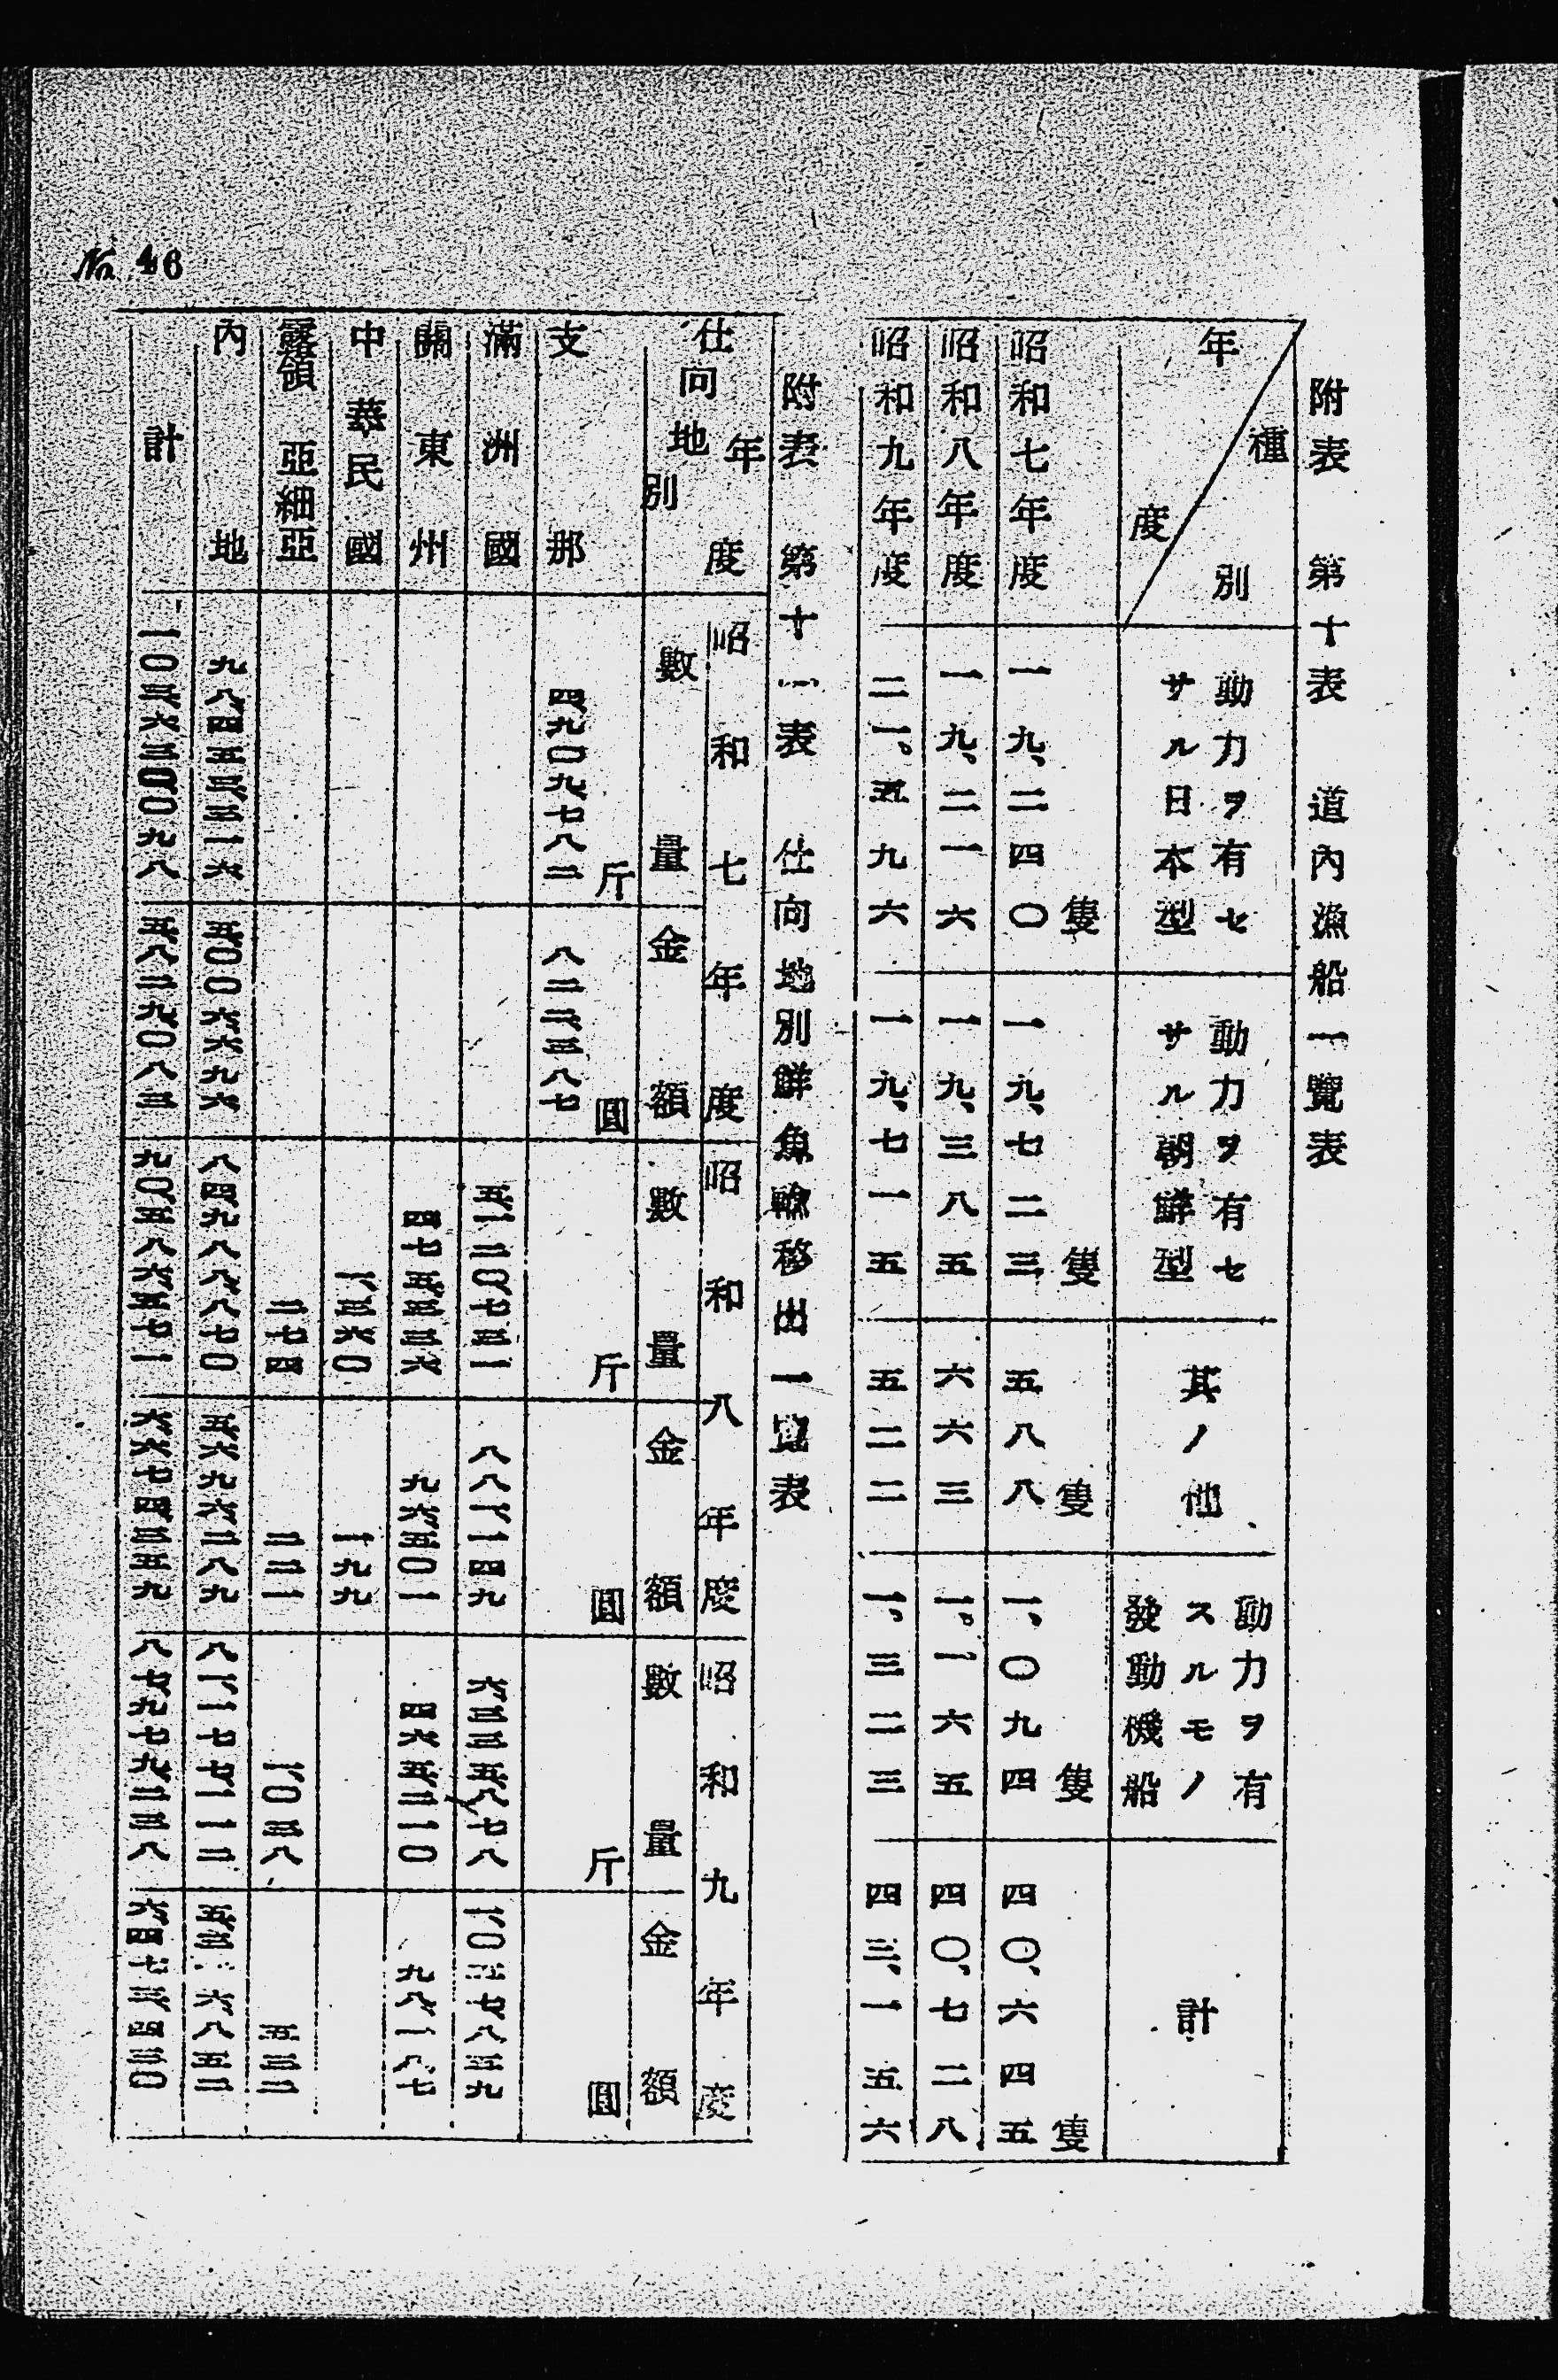 附表 第十表 道內漁船一覽表
年度 種別 動力ヲ有セサル日本型 動力ヲ有セサル朝鮮型 其ノ他 動力ヲ有スルモノ發動機船 計
昭和七年度 一九、二四〇隻 一九、七二三隻 五八八隻 一、〇九四隻 四〇、六四五隻
昭和八年度 一九、二一六 一九、三八五 六六三 一、一六五 四〇、七二八
昭和九年度 二一、五九六 一九、七一五 五二二 一、三二三 四三、一五六
附表 第十一表 仕向地別鮮魚輸移出一覽表
年度 昭和七年度 昭和八年度 昭和九年度
仕向地別 數量 金額 數量 金額 數量 金額
斤 圓 斤 圓 斤 圓
支那 四、九〇九、七八二 八二二、三八七
滿洲國 五、一二〇、七三一 八八一、一四九 六、三三五、八七八 一、〇三七、八三九
關東州 四七五、三三六 九六、五〇一 四六五、二一〇 九八、一八七
中華民國 一、三六〇 一九九
露領亞細亞 二七四 二二一 一、〇三八 五三二
內地 九八、四五三、三一六 五、〇〇六、六九六 八四、九八八、八七〇 五、六九六、二八九 八一、一七七、一一二
計 五、八二九、〇八三 九〇、五八六、五七一 六、六七四、三五九 八七、九七九、二三八 六、四七三、四三〇
No. 46